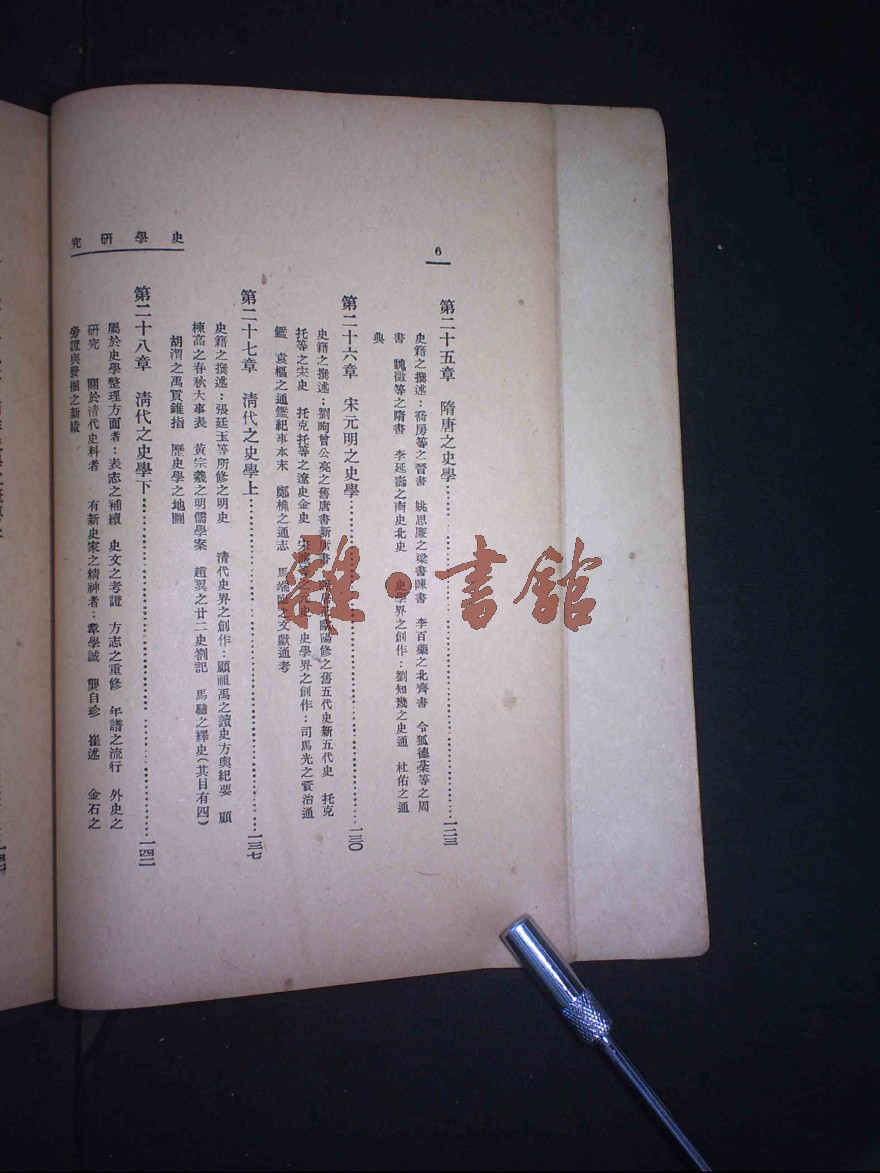 史學研究
6
第二十五章 隋唐之史學……一二三
史籍之撰述：喬房等之晉書 姚思廉之梁書陳書 李百藥之北齊書 令狐德棻等之周
書 魏徵等之隋書 李延壽之南史北史 史學界之創作：劉知幾之史通 杜佑之通
典
第二十六章 宋元明之史學……一三〇
史籍之撰述：劉昫曾公亮之舊唐書新唐書 歐陽修之舊五代史新五代史 托克
托等之宋史 托克托等之遼史金史 宋 元史 史學界之創作：司馬光之資治通
鑑 袁樞之通鑑紀事本末 鄭樵之通志 馬端臨之文獻通考
第二十七章 清代之史學上……一三七
史籍之撰述：張廷玉等所修之明史 清代史界之創作：顧祖禹之讀史方輿紀要 顧
棟高之春秋大事表 黃宗羲之明儒學案 趙翼之廿二史劄記 馬驌之繹史(其目有四)
胡渭之禹貢錐指 歷史學之地圖
第二十八章 清代之史學下……一四二
屬於史學整理方面者：表志之補續 史文之考證 方志之重修 年譜之流行 外史之
研究 關於清代史料者 有新史家之精神者：章學誠 龔自珍 崔述 金石之
旁證與發掘之新績
雜·書館